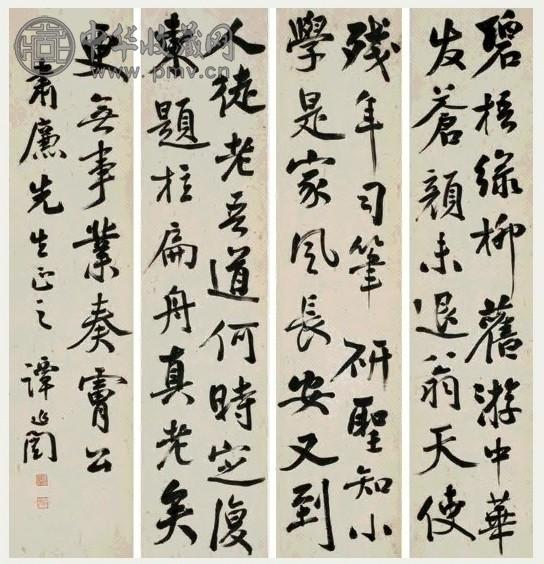 碧梧綠柳舊游中華
发蒼顏未退翁天使
殘年司筆研聖知小
學是家風長安又到
人徒老吾道何時定復
東題柱扁舟真老矣
更無事業奏膚公
肅廉先生正之 譚延闓
中华收藏网
www.pmv.cn